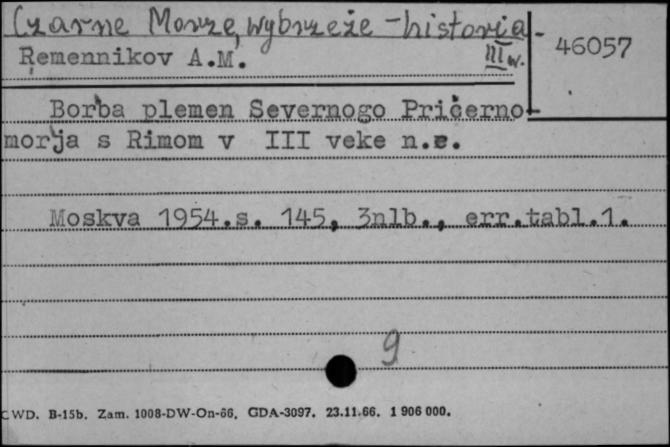 Czarne Morze, wybrzeże - historia -
III w.
46057
Remennikov A.M.
Borba plemen Severnogo Pričerno-
morja s Rimom v III veke n.e.
Moskva 1954.s. 145, 3nlb., err.tabl.1.
9
CWD. B-15b. Zam. 1008-DW-On-66. GDA-3097. 23.11.66. 1 906 000.